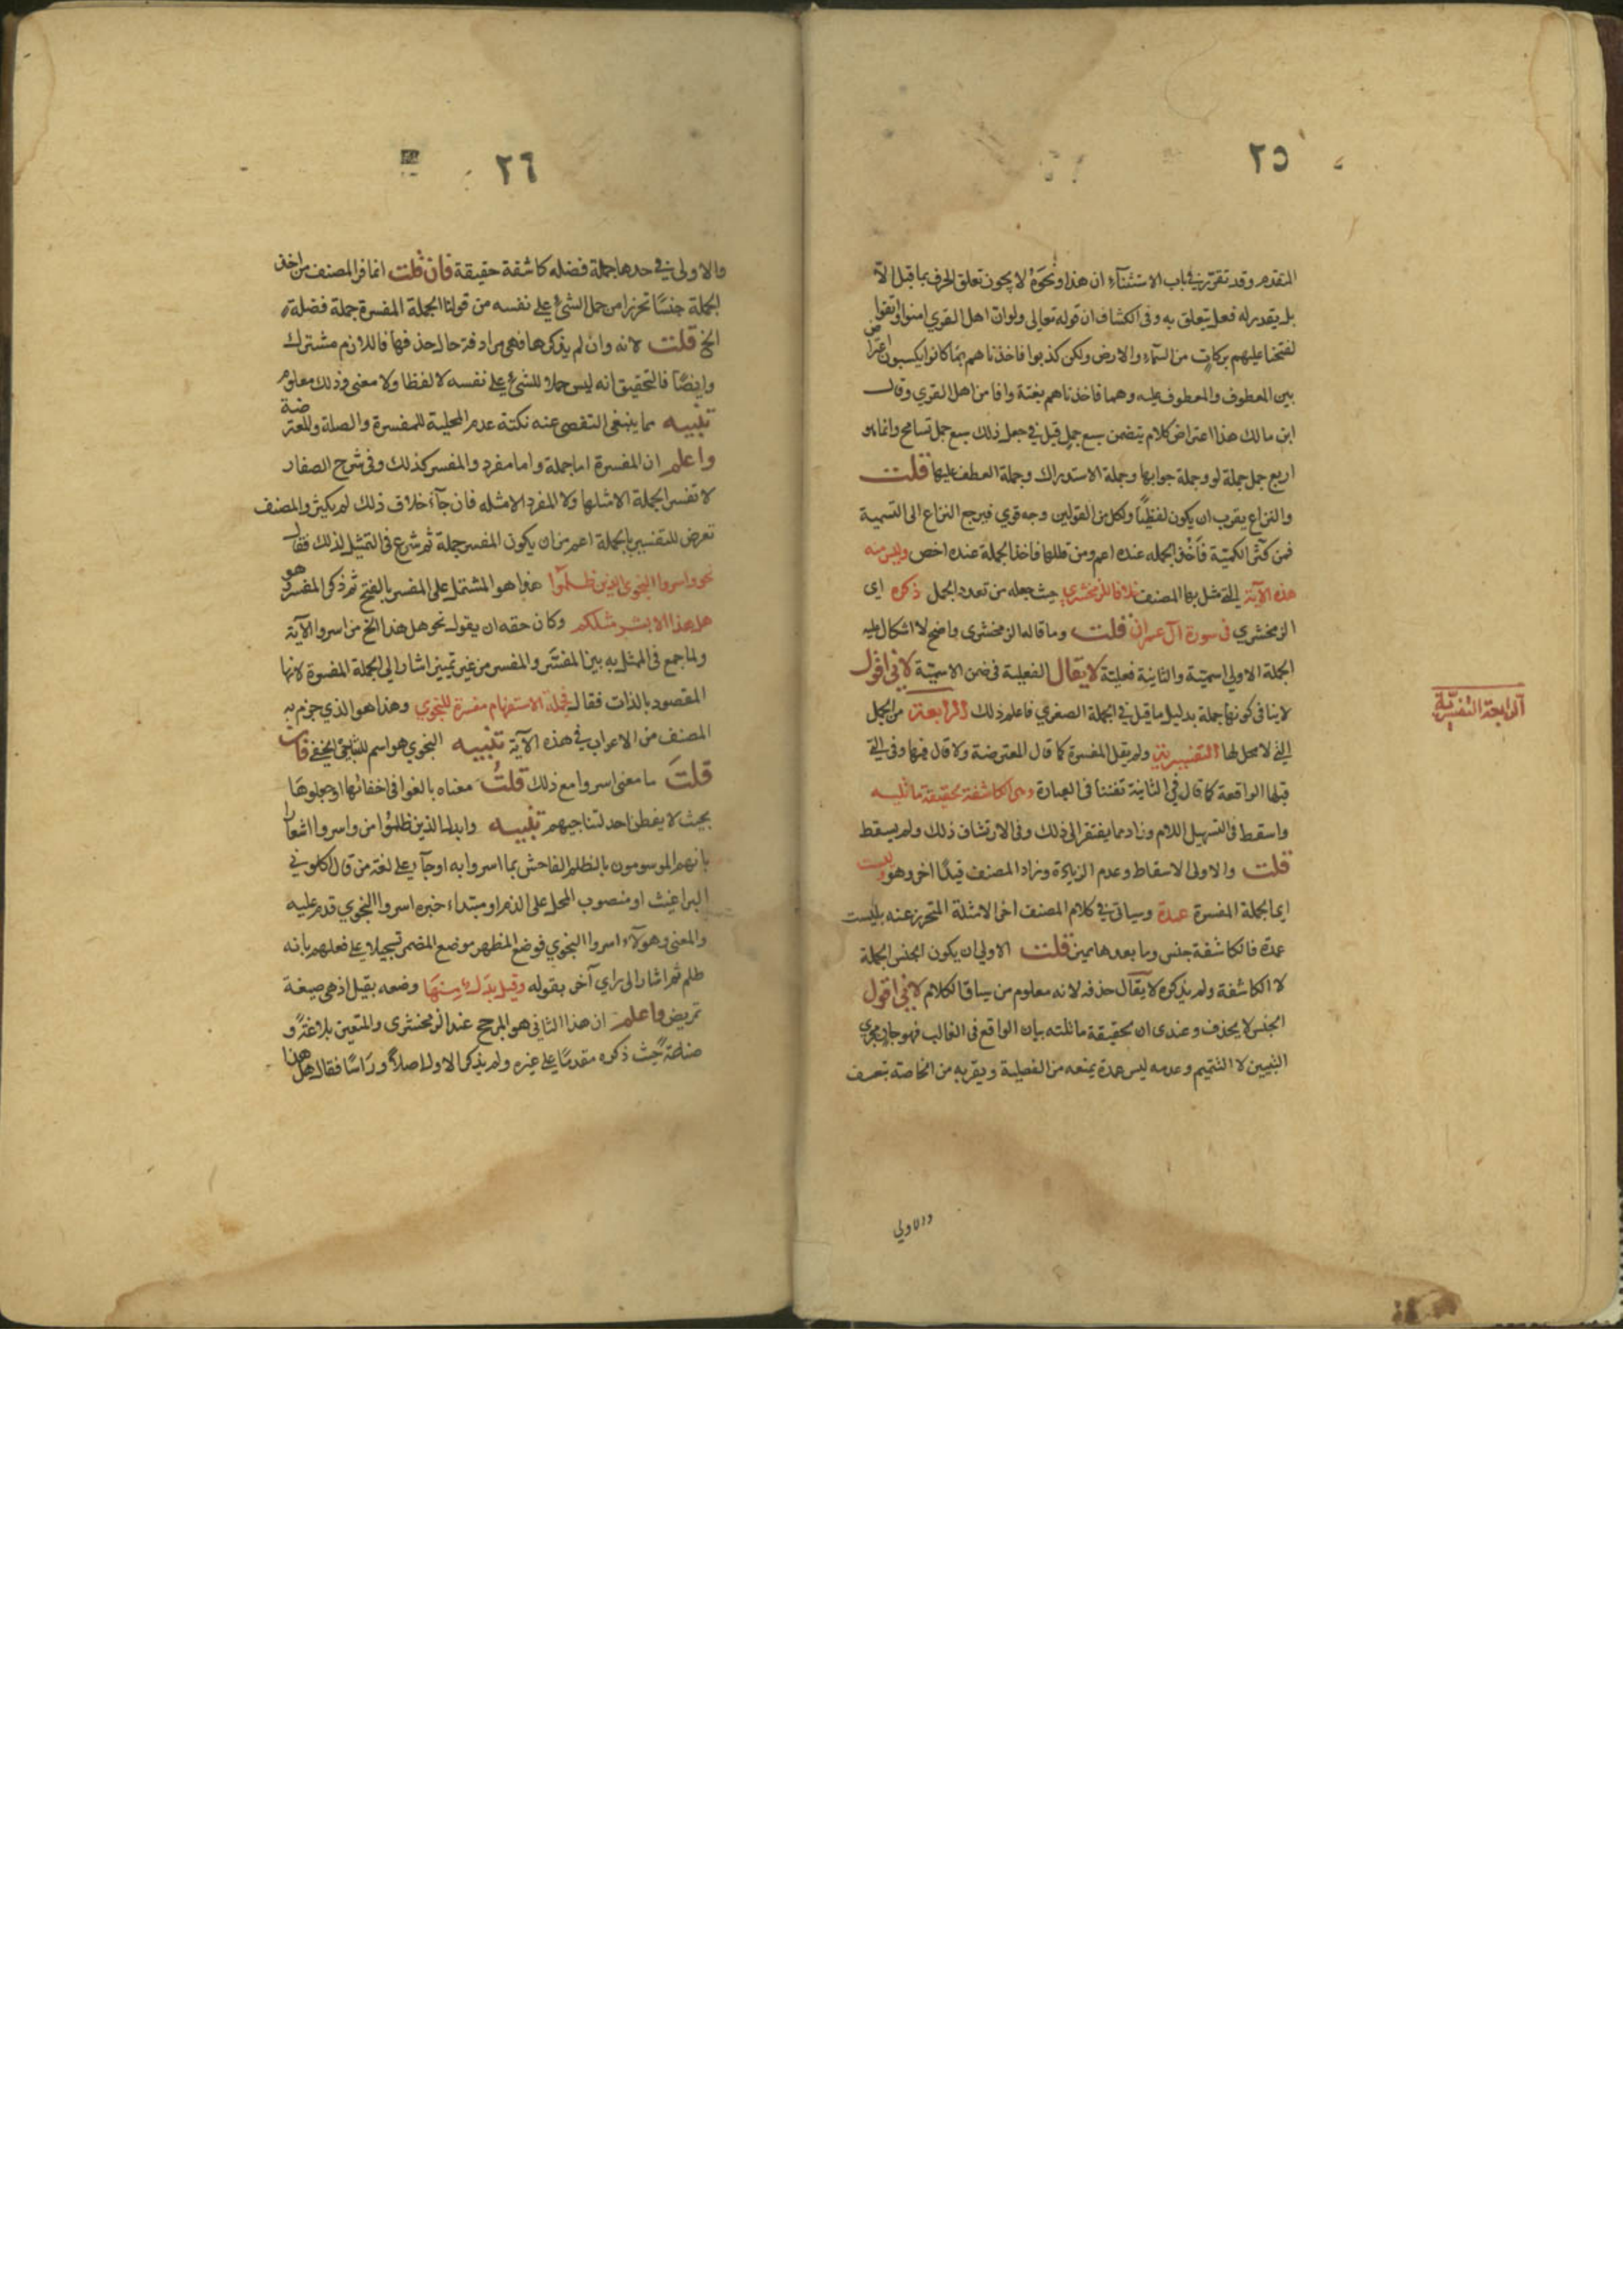 ٢٥
المتقدم وقد تقرر في باب الاستثناء ان هذا ونحوه لا يجوز تعلق الحرف بما قبل الا
بل يقدر له فعل يتعلق به وفى الكشاف ان قوله تعالى ولو ان اهل القري امنوا واتقوا
لفتحنا عليهم بركات من السماء والارض ولكن كذبوا فاخذناهم بما كانوا يكسبون اعتراض
بين المعطوف والمعطوف عليه وهما فاخذناهم بغتة وافامن اهل القري وقال
ابن مالك هذا اعتراض كلام يتضمن سبع جمل قيل في جعل ذلك سبع جمل تسامح وانما هو
اربع جمل جملة لو وجملة جوابها وجملة الاستدراك وجملة العطف عليها قلت
والنزاع يقرب ان يكون لفظيا ولكل من القولين وجه قوي فيرجع النزاع الى التسمية
فمن كثر الكمية فاخذ الجملة عنده اعم ومن قللها فاخذ الجملة عنده اخص وليس منه
هذه الآية التي مثل بها المصنف خلافا للزمخشري حيث جعله من تعدد الجمل ذكره اى
الزمخشري في سورة آل عمران قلت وما قاله الزمخشرى واضح لا اشكال عليه
الجملة الاولي اسمية والثانية فعلية لا يقال الفعلية فى ضمن الاسمية لاني اقول
لا ينافى كونها جملة بدليل ما قيل في الجملة الصغري فاعلم ذلك الرابعة من الجمل
التي لا محل لها التفسيرية ولم يقل المفسرة كما قال المعترضة ولا قال فيها وفى التي
قبلها الواقعة كما قال في الثانية تفننا فى العبارة وهي الكاشفة لحقيقة ما تليه
واسقط فى التسهيل اللام وزاد مما يفتقر الى ذلك وفى الارتشاف ذلك ولم يسقط
قلت والاولى الاسقاط وعدم الزيادة وزاد المصنف قيدا اخر وهو وليست
اى الجملة المفسرة عمدة وسياتى في كلام المصنف اخر الامثلة المتحرز عنه بليست
عمدة فالكاشفة جنس وما بعدها مميز قلت الاولي ان يكون الجنس الجملة
لا الكاشفة ولم يذكره لا يقال حذفه لانه معلوم من سياق الكلام لاني اقول
الجنس لا يحذف وعندى ان لحقيقة ما تليه بيان الواقع فى الغالب فهو جار مجري
التبيين لا التتميم وعدمه ليس عمدة يمنعه من الفصلية ويقربه من الخاصة بتعسف
والاولي
الرابعة التفسيرية
٢٦
والاولى في حدها جملة فضلة كاشفة حقيقة فان قلت انما فر المصنف من اخذ
الجملة جنسا تحرزا من حمل الشئ على نفسه من قولنا الجملة المفسرة جملة فضلة
الخ قلت لانه وان لم يذكرها فهي مرادفة حال حذفها فاللازم مشترك
وايضا فالتحقيق انه ليس حملا للشئ على نفسه لا لفظا ولا معنى وذلك معلوم
تنبيه مما ينبغى التفصى عنه نكتة عدم المحلية للمفسرة والصلة والمعترضة
واعلم ان المفسرة اما جملة واما مفرد والمفسر كذلك وفى شرح الصفار
لا تفسر الجملة الا مثلها ولا المفرد الا مثله فان جآء خلاف ذلك لم يكثر والمصنف
تعرض للتفسير بالجملة اعم من ان يكون المفسر جملة ثم شرع فى التمثيل لذلك فقال
نحو واسروا النجوي الذين ظلموا هذا هو المشتمل على المفسر بالفتح ثم ذكر المفسر وهو
هل هذا الا بشر مثلكم وكان حقه ان يقول نحو هل هذا الخ من اسروا الآية
ولما جمع فى الممثل به بين المفسَّر والمفسر من غير تمييز اشار الى الجملة المفسرة لانها
المقصود بالذات فقال فجملة الاستفهام مفسرة للنجوي وهذا هو الذي جزم به
المصنف من الاعراب في هذه الآية تنبيه النجوي هو اسم للتناجي الخفي فان
قلتَ ما معنى اسروا مع ذلك قلتُ معناه بالغوا فى اخفائها او جعلوها
بحيث لا يفطن احد لتناجيهم تنبيه وابدل الذين ظلموا من واسروا اشعارا
بانهم الموسومون بالظلم الفاحش بما اسروا به او جآء على لغة من قال اكلوني
البراغيث او منصوب المحل على الذم او مبتداء خبره اسروا النجوي قدم عليه
والمعنى وهولآء اسروا النجوي فوضع المظهر موضع المضمر تسجيلا على فعلهم بانه
ظلم ثم اشار الى راي آخر بقوله وقيل بدل منها وضعه بقيل اذ هى صيغة
تمريض واعلم ان هذا الثانى هو المرجح عند الزمخشرى والمتعين بلاغة و
صناعة حيث ذكره مقدما على غيره ولم يذكر الاول اصلا وراسا فقال هل هذا